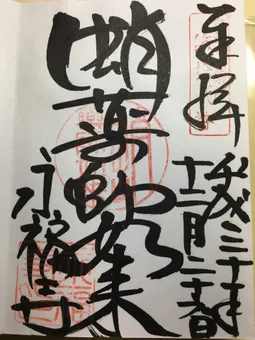 奉拝
平成三十年
十二月二十日
蛸薬師如来
永福寺